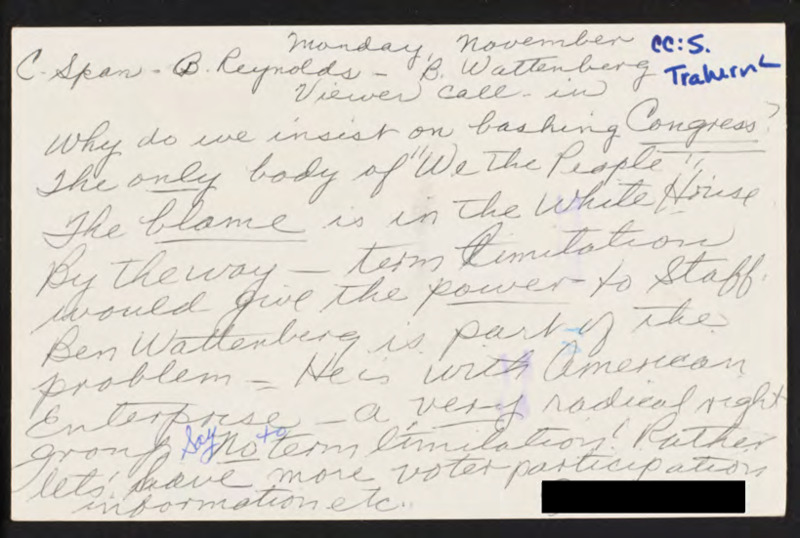 Monday, November
cc: S.
C. Span - B. Reynolds - B. Wattenberg
Viewer call-in
Why do we insist on bashing Congress?
The only body of "We the People"
The blame is in the White House
By the way — term limitation
would give the power to Staff.
Ben Wattenberg is part of the
problem — He is with American
Enterprise — a very radical right
group Say No to term limitation! Rather
lets' have more voter participation
information etc..